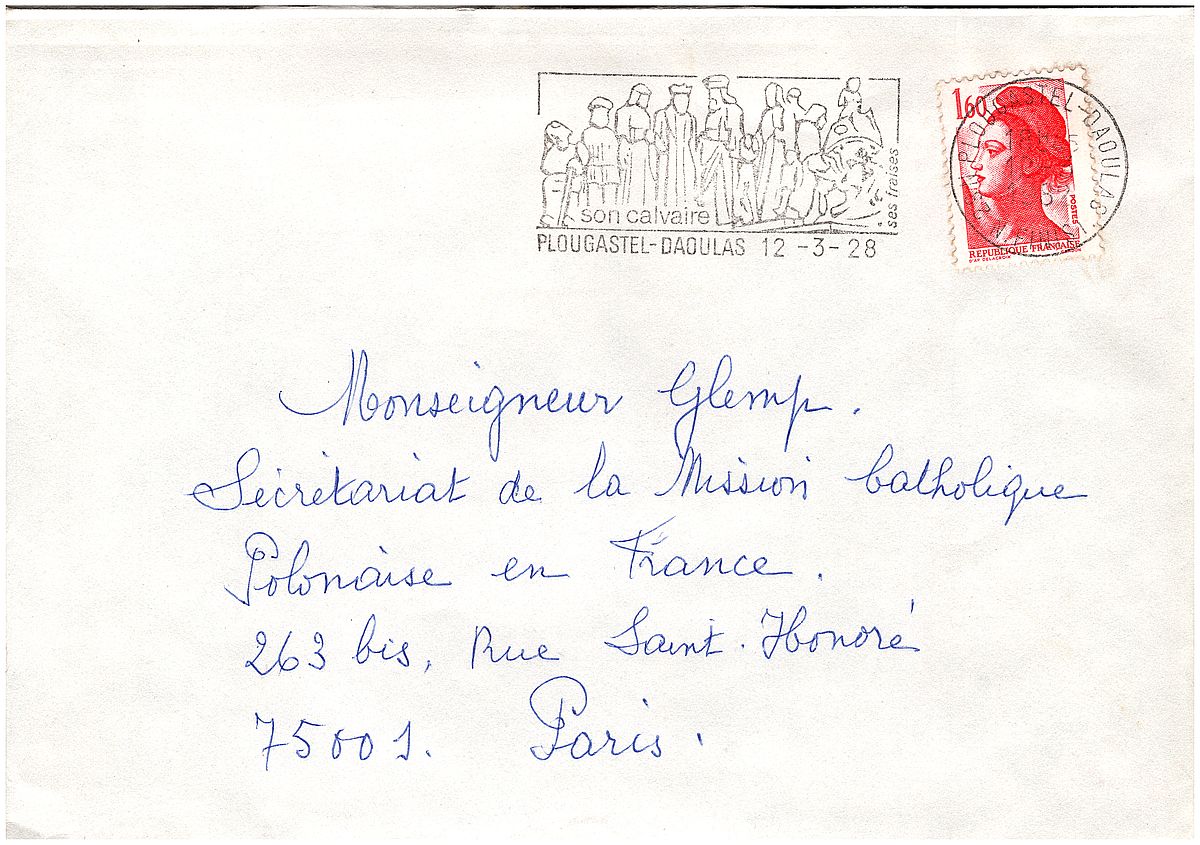 son calvaire
ses fraises
PLOUGASTEL-DAOULAS 12 -3- 28
1,60
POSTES
REPUBLIQUE FRANÇAISE
D'AP. DELACROIX
PLOUGASTEL-DAOULAS
Monseigneur Glemp.
Sécrétariat de la Mission Catholique
Polonaise en France.
263 bis, Rue Saint-Honoré
75001. Paris.